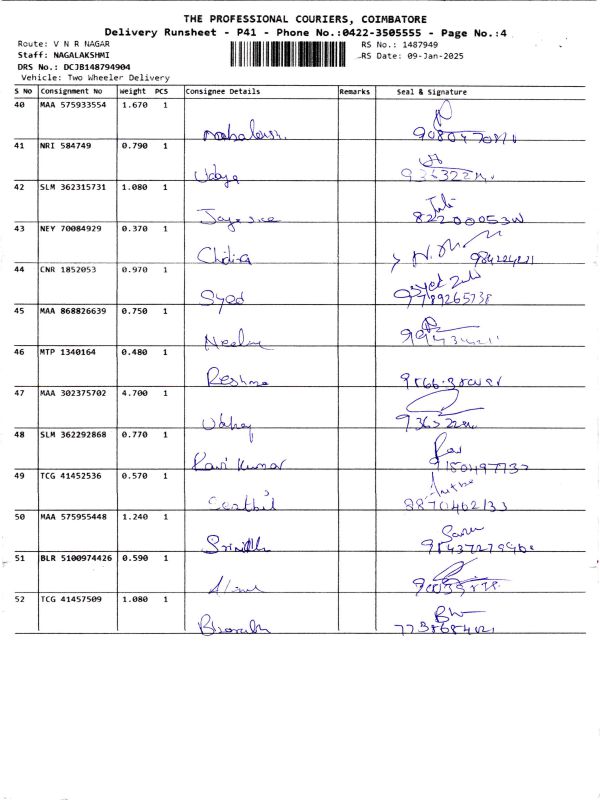 THE PROFESSIONAL COURIERS, COIMBATORE
Delivery Runsheet - P41 - Phone No.:0422-3505555 - Page No.:4
Route: V N R NAGAR
RS No.: 1487949
Staff: NAGALAKSHMI
RS Date: 09-Jan-2025
DRS No.: DCJB148794904
Vehicle: Two Wheeler Delivery
S No Consignment No Weight PCS Consignee Details Remarks Seal & Signature
40 MAA 575933554 1.670 1
41 NRI 584749 0.790 1
Udaya
42 SLM 362315731 1.080 1
43 NEY 70084929 0.370 1
Chitira
44 CNR 1852053 0.970 1
Syed
Syed
9789265738
45 MAA 868826639 0.750 1
46 MTP 1340164 0.480 1
Reshma
47 MAA 302375702 4.700 1
Uday
48 SLM 362292868 0.770 1
Ravi
Ravi Kumar 9150497737
49 TCG 41452536 0.570 1
Senthil 8870462133
50 MAA 575955448 1.240 1
51 BLR 5100974426 0.590 1
52 TCG 41457509 1.080 1
7738684021